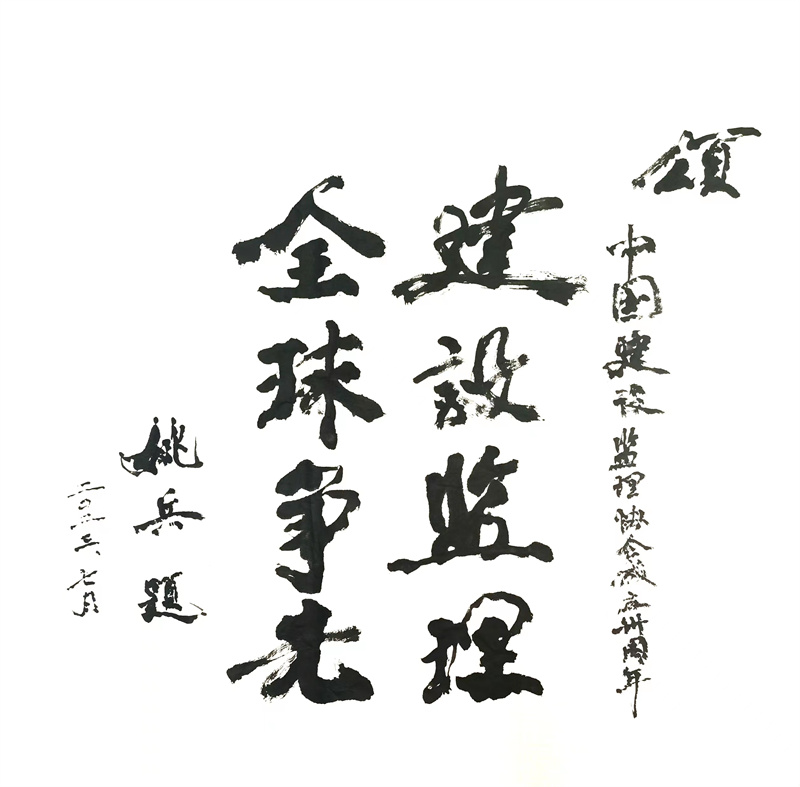 颂
中国建设监理协会成立卅周年
建設监理
全球争先
姚兵题
二〇二三、七月